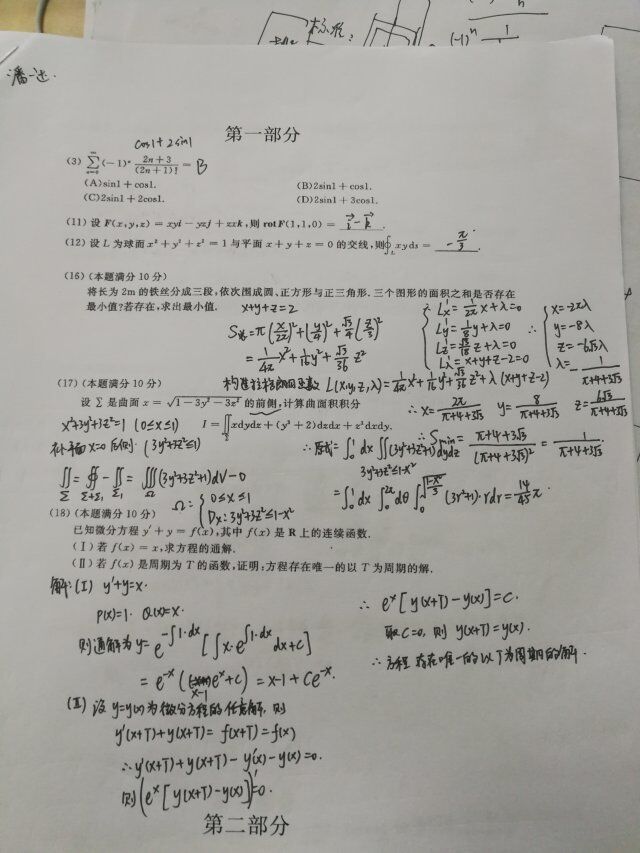 潘一达.
标准:
(-1)ⁿ
第一部分
cos1+2sin1
(3) ∑_{n=0}^{∞}(-1)ⁿ (2n+3)/(2n+1)! = B
(A)sin1+cos1. (B)2sin1+cos1.
(C)2sin1+2cos1. (D)2sin1+3cos1.
(11) 设 F(x,y,z)=xyi-yzj+zxk,则 rotF(1,1,0)= i⃗-k⃗ .
(12) 设 L 为球面 x²+y²+z²=1 与平面 x+y+z=0 的交线,则∮_L xyds= -π/3 .
(16) (本题满分 10 分)
将长为 2m 的铁丝分成三段,依次围成圆、正方形与正三角形.三个图形的面积之和是否存在
最小值?若存在,求出最小值. x+y+z=2
S总=π(x/2π)²+(y/4)²+√3/4(z/3)²
=1/4π x²+1/16 y²+√3/36 z²
构造拉格朗日函数 L(x,y,z,λ)=1/4π x²+1/16 y²+√3/36 z²+λ(x+y+z-2)
{ L'x=1/2π x+λ=0
L'y=1/8 y+λ=0
L'z=√3/18 z+λ=0
L'λ=x+y+z-2=0
∴ { x=-2πλ
y=-8λ
z=-6√3λ
λ=-1/(π+4+3√3)
∴ x=2π/(π+4+3√3) y=8/(π+4+3√3) z=6√3/(π+4+3√3)
∴ Smin=(π+4+3√3)/(π+4+3√3)²=1/(π+4+3√3)
(17) (本题满分 10 分)
设 Σ 是曲面 x=√(1-3y²-3z²) 的前侧,计算曲面积分
x²+3y²+3z²=1 (0≤x≤1) I=∬_Σ xdydz+(y³+2)dzdx+z³dxdy.
补平面 x=0 后侧: (3y²+3z²≤1)
∬_Σ=∯_{Σ+Σ₁}-∬_{Σ₁}=∭_Ω(3y²+3z²+1)dV-0
Ω={ 0≤x≤1
Dx:3y²+3z²≤1-x²
∴ 原式=∫₀¹dx∬(3y²+3z²+1)dydz
3y²+3z²≤1-x²
=∫₀¹dx∫₀^{2π}dθ∫₀^{√((1-x²)/3)}(3r²+1)·rdr=14/45 π.
(18) (本题满分 10 分)
已知微分方程 y'+y=f(x),其中 f(x) 是 R 上的连续函数.
(Ⅰ) 若 f(x)=x,求方程的通解.
(Ⅱ) 若 f(x) 是周期为 T 的函数,证明:方程存在唯一的以 T 为周期的解.
解:(I) y'+y=x.
P(x)=1. Q(x)=x.
则通解为 y=e^{-∫1·dx}[∫x·e^{∫1·dx}dx+c]
=e^{-x}(x-1 e^x+c)=x-1+Ce^{-x}.
(Ⅱ) 设 y=y(x)为微分方程的任意解, 则
y'(x+T)+y(x+T)=f(x+T)=f(x)
∴ y'(x+T)+y(x+T)-y'(x)-y(x)=0.
则(e^x[y(x+T)-y(x)])'=0.
∴ e^x[y(x+T)-y(x)]=C.
取C=0, 则 y(x+T)=y(x).
∴ 方程存在唯一的以T为周期的解.
第二部分